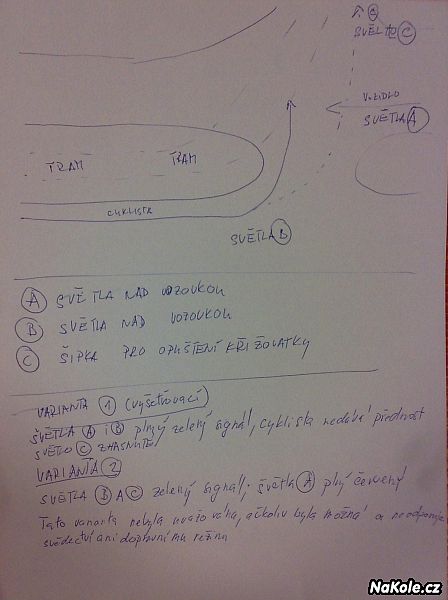 C
SVĚTLO C
VOZIDLO
SVĚTLA A
TRAM TRAM
CYKLISTA
SVĚTLA B
A SVĚTLA NAD VOZOVKOU
B SVĚTLA NAD VOZOVKOU
C ŠIPKA PRO OPUŠTĚNÍ KŘIŽOVATKY
VARIANTA 1 (vyšetřovací)
SVĚTLA A i B plný zelený signál, cyklista nedává přednost
SVĚTLO C ZHASNUTÉ
VARIANTA 2
SVĚTLA B A C zelený signál, světla A plný červený
Tato varianta nebyla uvažována, ačkoliv byla možná a neodporuje
svědectví ani dopravnímu režimu
NaKole.cz